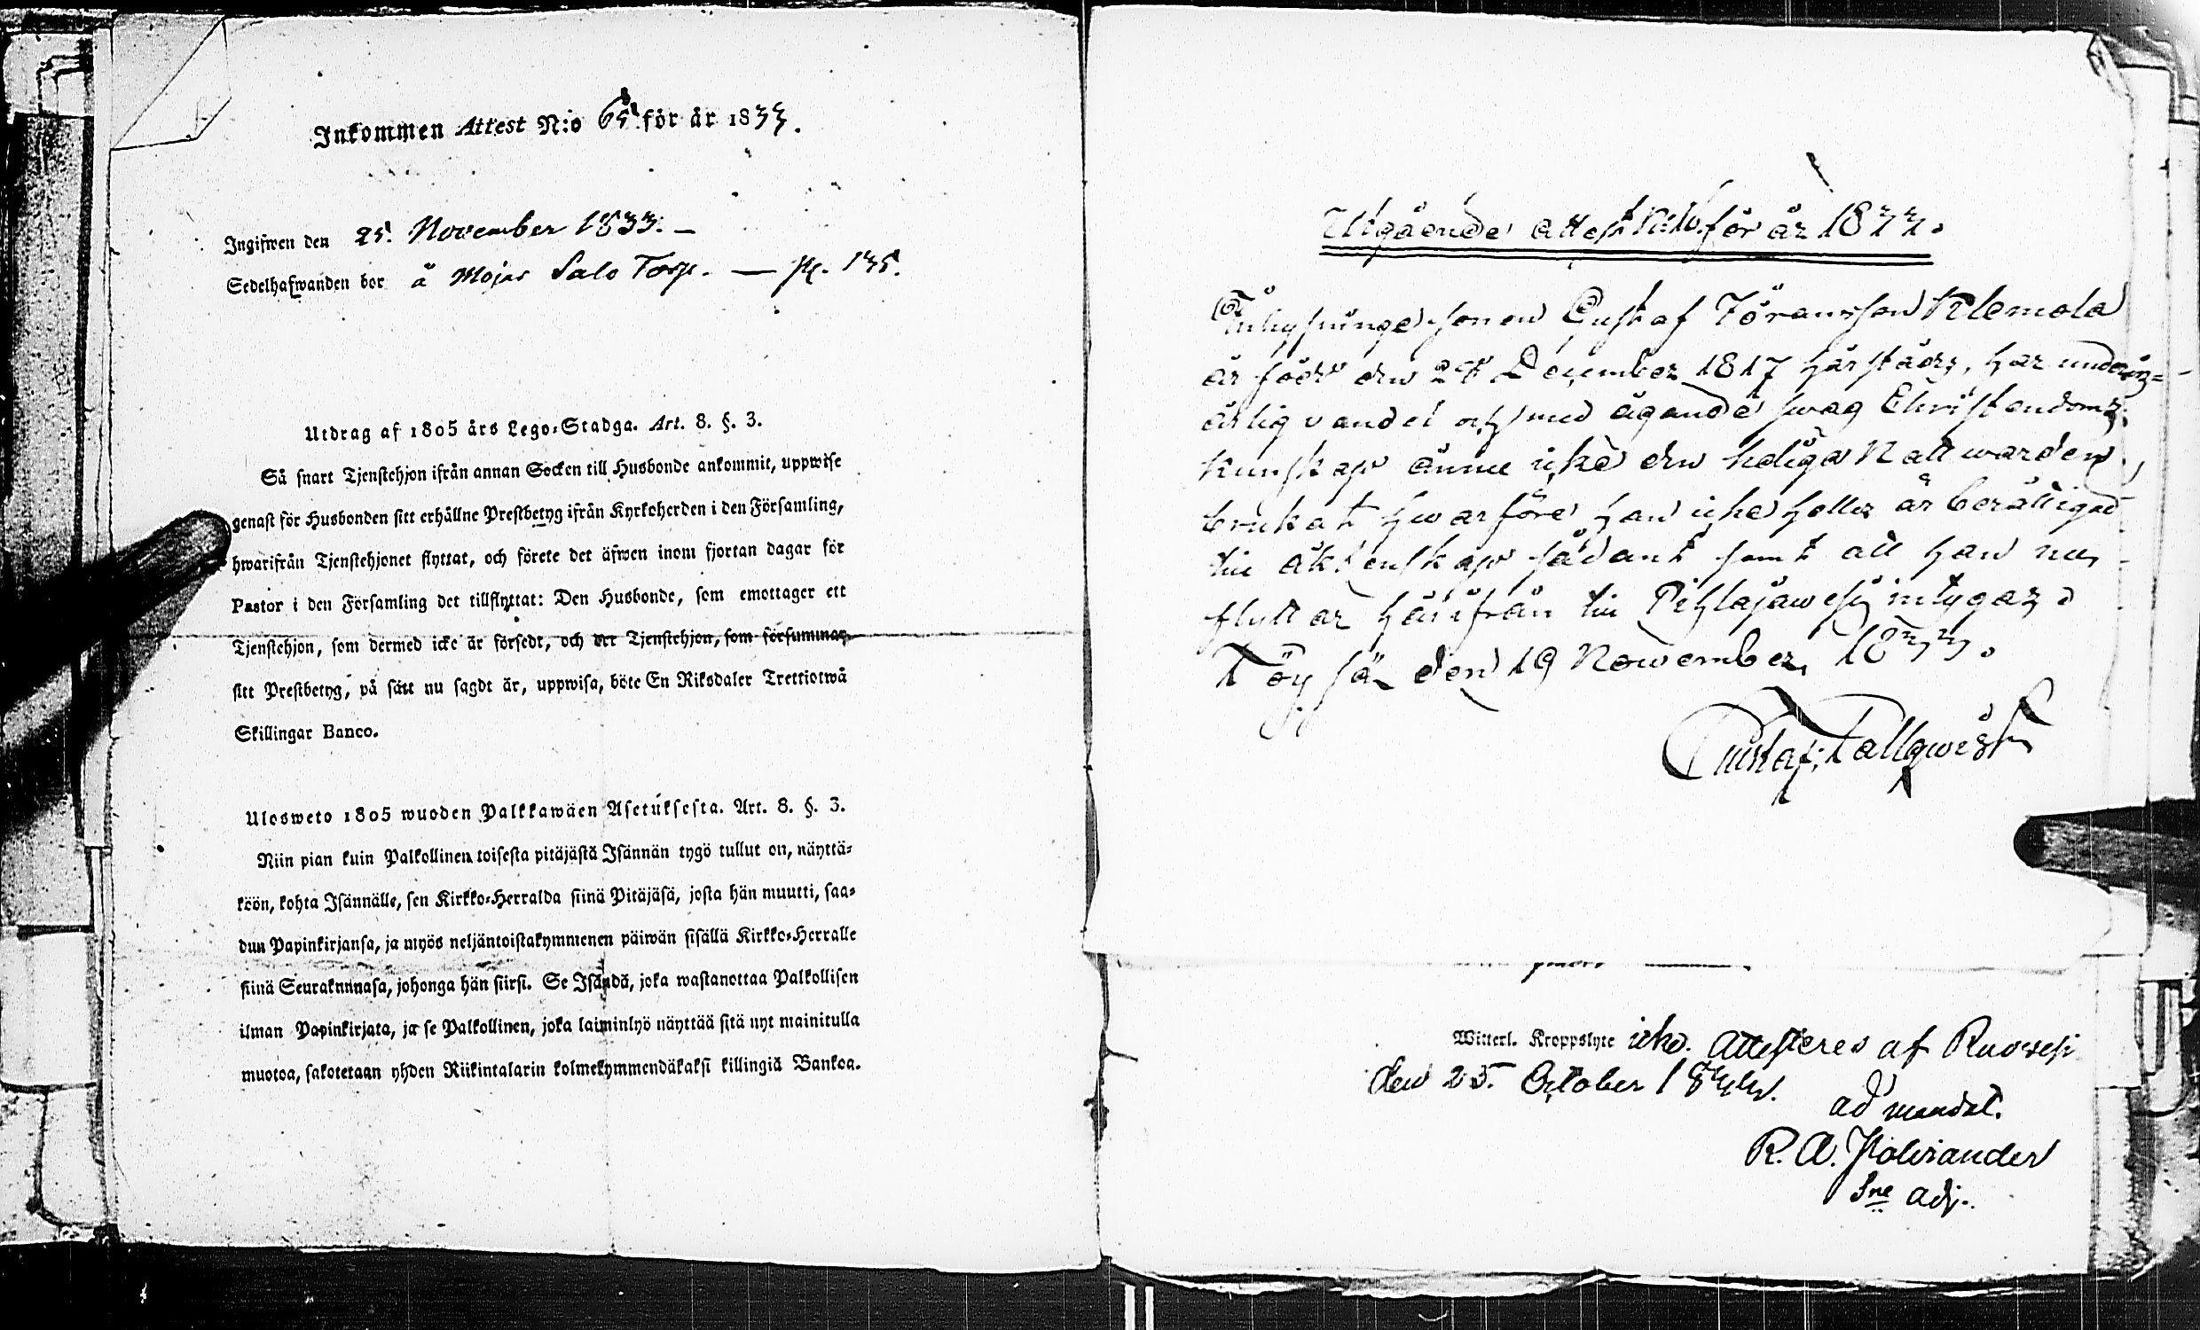 Inkommen Attest N:o 65 för år 1833.
Ingifwen den 25. November 1833. —
Sedelhafwanden bor å Mojas Salo Torp. — p. 135.
Utdrag af 1805 års Lego-Stadga. Art. 8. §. 3.
Så snart Tjenstehjon ifrån annan Socken till Husbonde ankommit, uppwise
genast för Husbonden sitt erhållne Prestbetyg ifrån Kyrkoherden i den Församling,
hwarifrån Tjenstehjonet flyttat, och förete det äfwen inom fjortan dagar för
Pastor i den Församling det tillflyttat: Den Husbonde, som emottager ett
Tjenstehjon, som dermed icke är försedt, och ett Tjenstehjon, som försummar
sitt Prestbetyg, på sätt nu sagdt är, uppwisa, böte En Riksdaler Trettiotwå
Skillingar Banco.
Ulosweto 1805 wuoden Palkkawäen Asetuksesta. Art. 8. §. 3.
Niin pian kuin Palkollinen toisesta pitäjästä Isännän tygö tullut on, näyttä-
köön, kohta Isännälle, sen Kirkko-Herralda siinä Pitäjäsä, josta hän muutti, saa-
dun Papinkirjansa, ja myös neljäntoistakymmenen päiwän sisällä Kirkko-Herralle
siinä Seurakunnasa, johonga hän siirsi. Se Isändä, joka wastanottaa Palkollisen
ilman Papinkirjata, ja se Palkollinen, joka laiminlyö näyttää sitä nyt mainitulla
muotoa, sakotetaan yhden Riikintalarin kolmekymmendäkaksi killingiä Bankoa.
Utgående attest N:o för år 1833.
Inhysinge sonen Gustaf Jöransson Klemola
är född den December 1817 härstädes, har under
ärlig vandel och med ägande swag Christendoms
kunskap ännu icke den heliga Nattwarden
brukat hwarföre han icke heller är berättigad
till äktenskap sådant samt att han nu
flyttar härifrån till Pihlajawesi intygar
Töysä den 19 November 1833.
Gustaf Tallqwist
Witterl. Kroppslyte icke. Attesteres af Ruovesi
den 25. October 18
ad mandat.
R. A. Polviander
Sne adj.